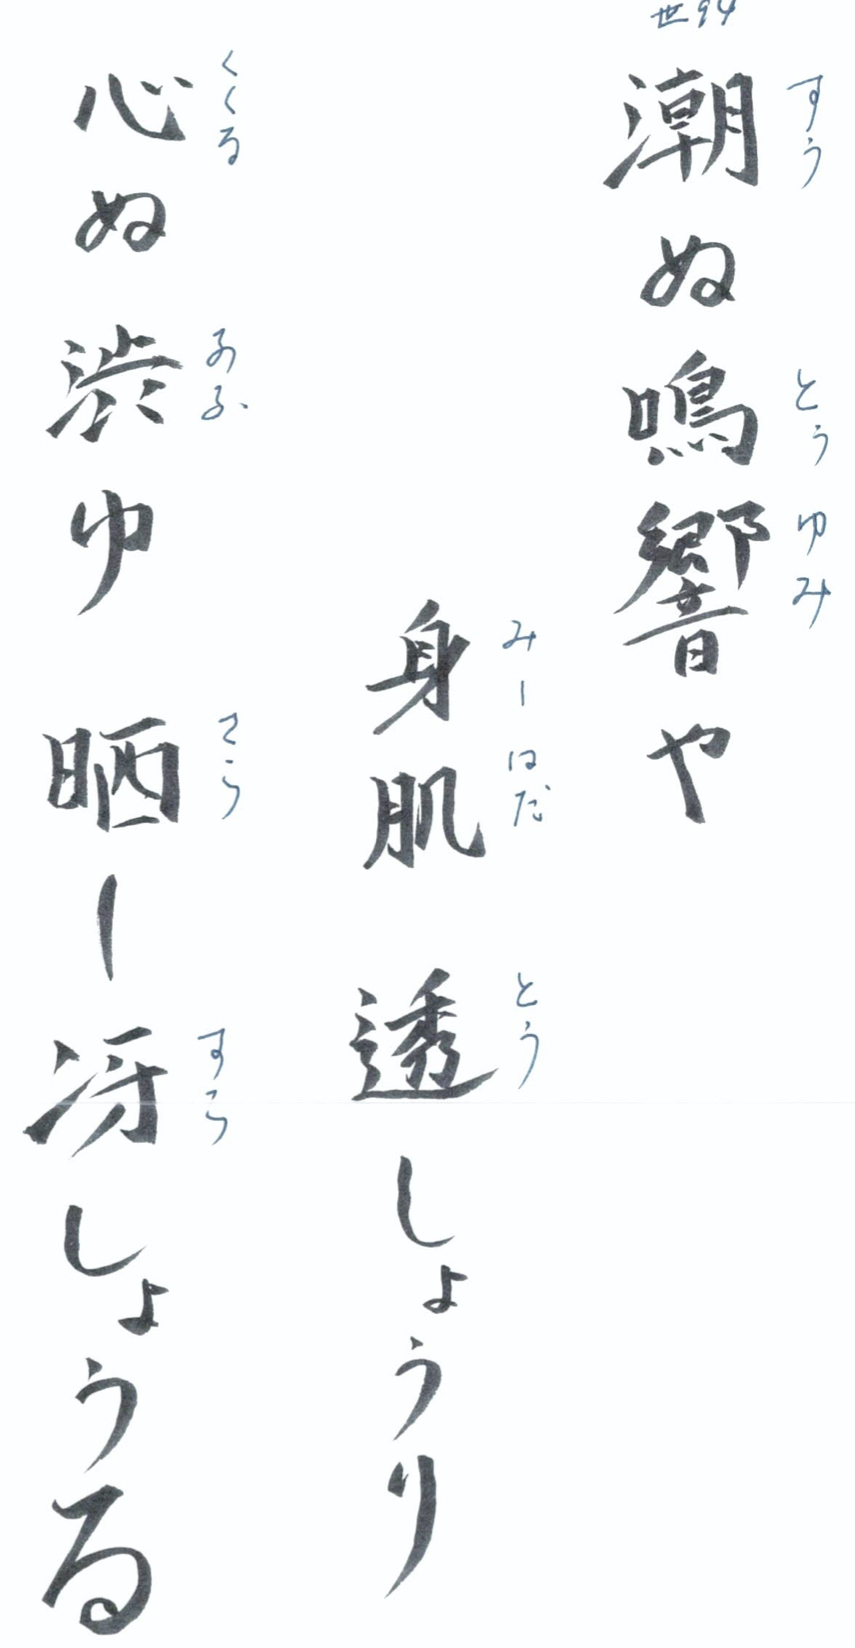 世94
潮ぬ鳴響や
すう とぅ ゆみ
身肌 透しょうり
みーはだ とう
心ぬ渋ゆ 晒ー冴しょうる
くくる さら すら